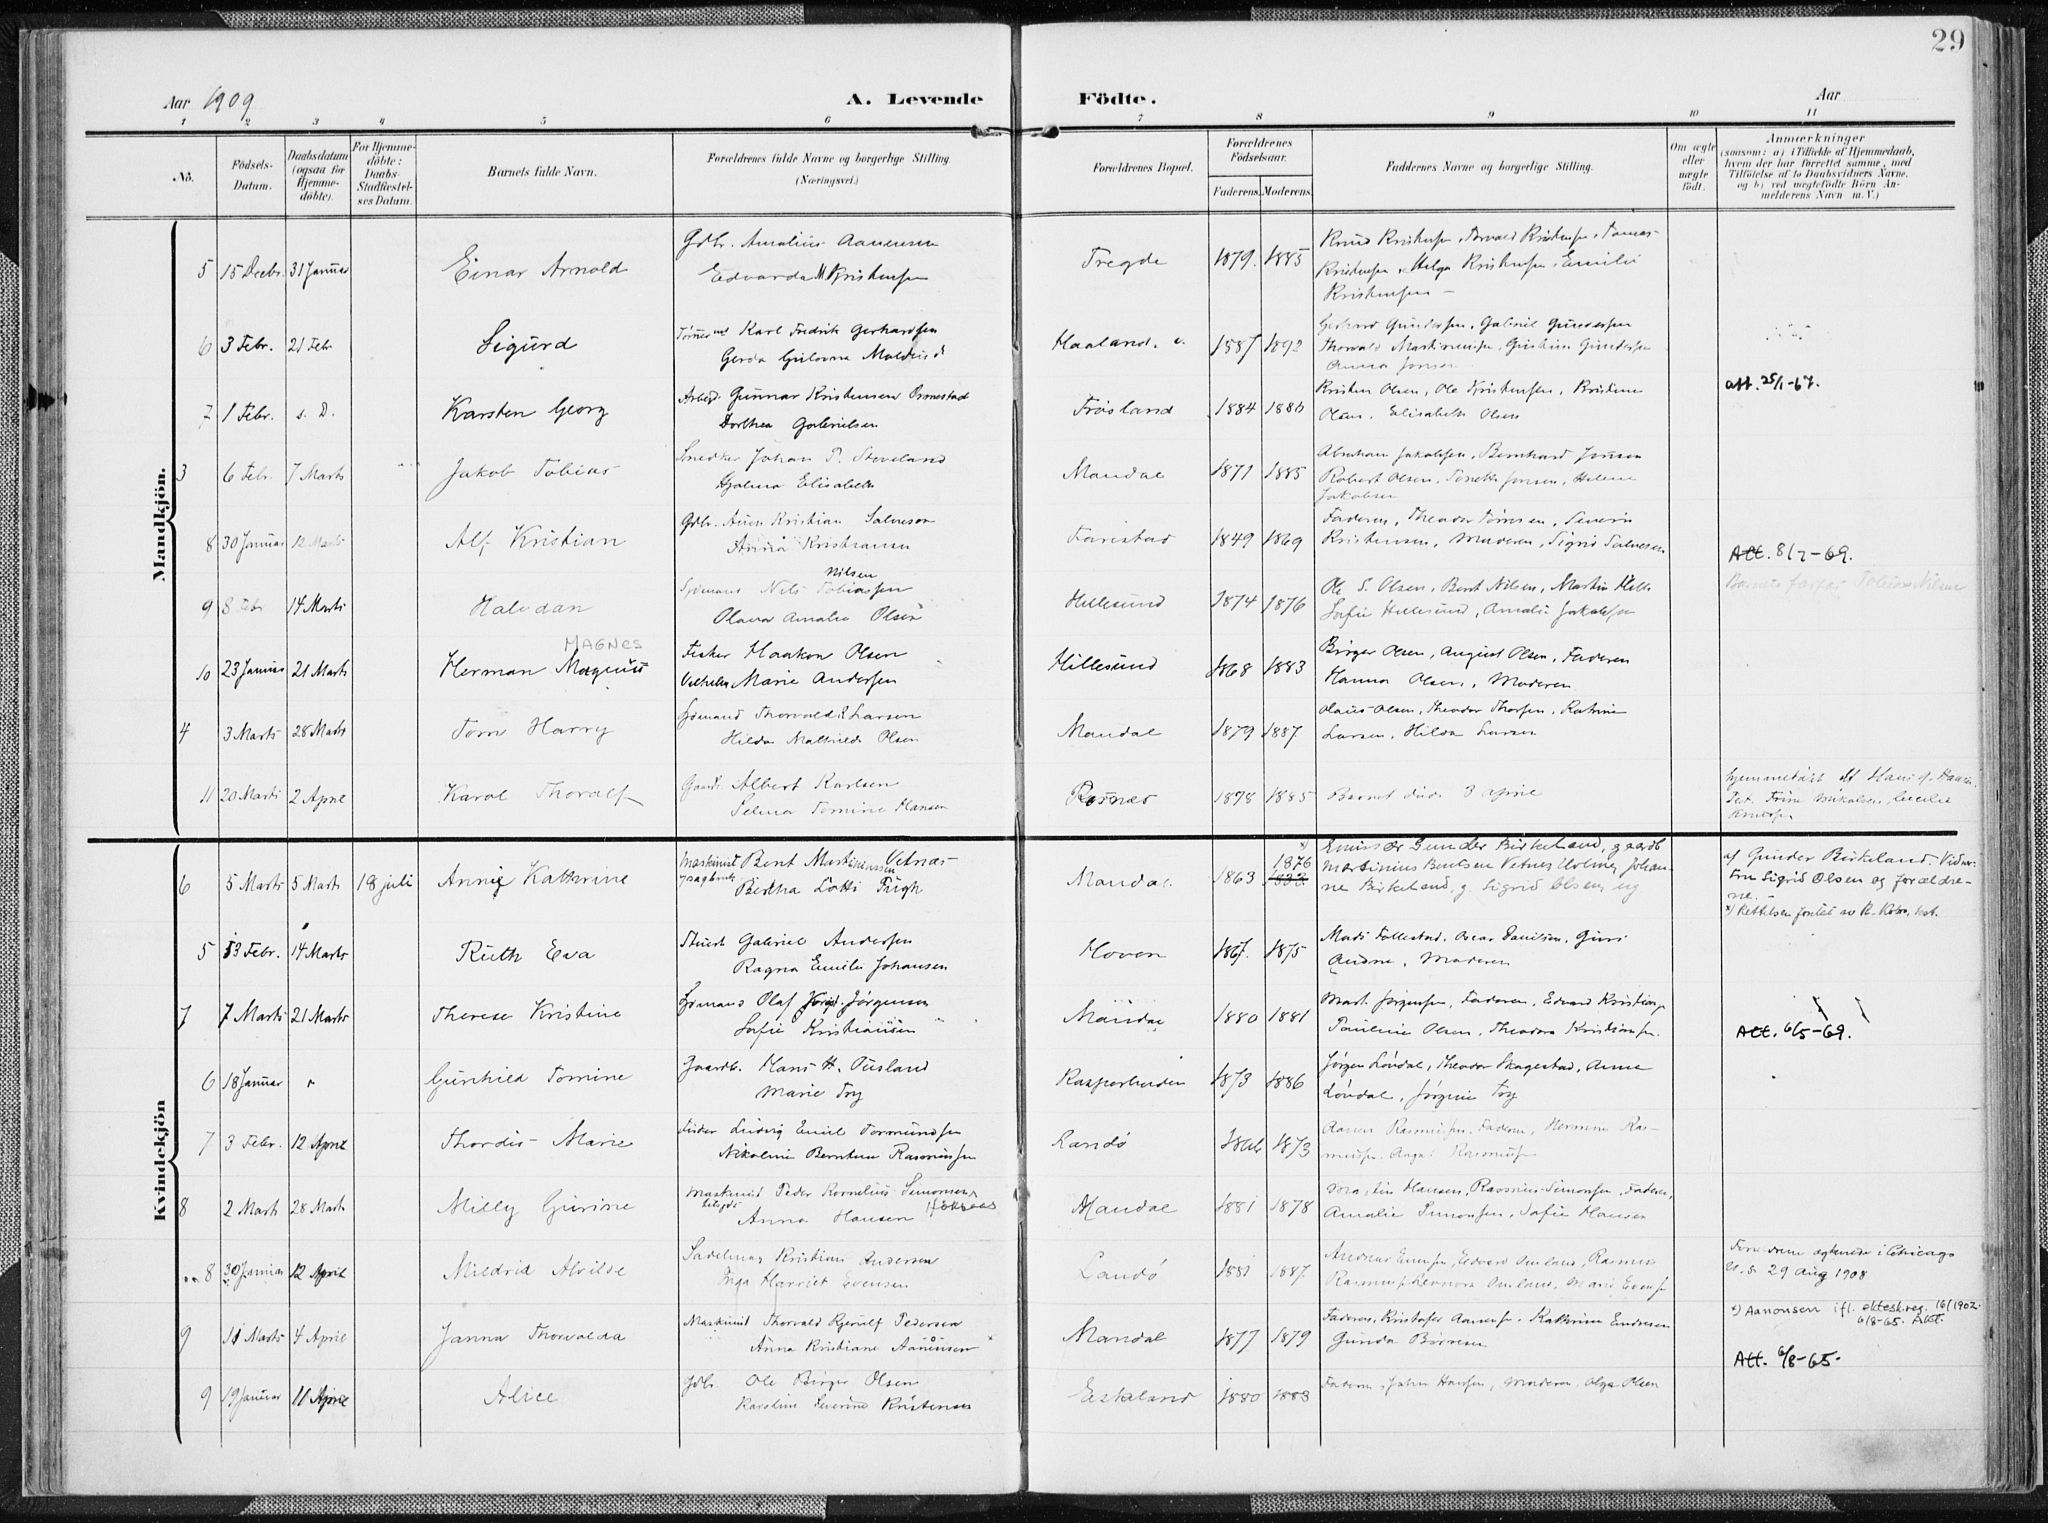 29
Aar 1909
A. Levende
Födte.
Aar
1 2 3 4 5 6 7 8 9 10 11
No.
Födsels-
Datum.
Daabsdatum
(ogsaa for
Hjemme-
döbte).
For Hjemme-
döbte:
Daabs-
Stadfæstel-
ses Datum.
Barnets fulde Navn.
Forældrenes fulde Navne og borgerlige Stilling.
(Næringsvei.)
Forældrenes Bopæl.
Forældrenes
Födselsaar.
Faderens. Moderens.
Faddernes Navne og borgerlige Stilling.
Om ægte
eller
uægte
födt.
Anmærkninger
(saasom: a) i Tilfælde af Hjemmedaab,
hvem der har forrettet samme, med
Tilföielse af to Daabsvidners Navne,
og b) ved uægtefödte Börn An-
melderens Navn m. V.)
Mandkjön.
5 15 Decbr. 31 Januar Einar Arnold
Gdbr. Amalius Aanensen
Edvarda M. Kristensen
Tregde 1879. 1885
Knud Kristensen, Torvald Kristensen, Tomas
Kristensen, Helga Kristensen, Emilie
Kristensen
6 3 Febr. 21 Febr Sigurd
Karl Fredrik Gerhardsen
Gerda Gulovna
Haaland. 1887 1892
Gerhard Gundersen, Gabriel Gundersen
Thorvald Martinussen, Gundersen
Anna Jonsen
7 1 Febr. s. D. Karsten Georg
Arbeid. Gunnar Kristensen Ormestad
Dorthea Gabrielsen
Frøsland 1884 1886
Kristen Olsen, Ole Kristensen, Kristine
Olsen, Elisabeth Olsen
att. 25/1-67.
3 6 Febr. 7 Marts Jakob Tobias
Snedker Johan P. Steveland
Hjalma Elisabeth
Mandal 1871 1885
Abraham Jakobsen, Bernhard Jensen
Robert Olsen, Tonette Jensen, Helene
Jakobsen
8 30 Januar 12 Marts Alf Kristian
Gdbr. Aanen Kristian Salveson
Anna Kristiansen
Faristad 1849 1869
Faderen, Theodor Tørresen, Severin
Kristensen, Moderen, Sigrid Salvesen
Att. 8/7-69.
9 8 Febr 14 Marts Halvdan
Nilsen
Sømand Nils Tobiassen
Olava Amalie Olsen
Hillesund 1874 1876
Ole S. Olsen, Bent Nilsen, Martin Hille
Sofie Hillesund, Amalie Jakobsen
Barnets farfar Tobias Nilsen
MAGNES
10 23 Januar 21 Marts Herman Magnus
Fisker Haakon Olsen
Vilhelm Marie Andersen
Hillesund 1868 1883
Birger Olsen, August Olsen, Faderen
Hanna Olsen, Moderen
4 3 Marts 28 Marts Tom Harry
Sømand Thorvald R Larsen
Hilda Mathilde Olsen
Mandal 1879 1887
Olaus Olsen, Theodor Thorsen, Katrine
Larsen, Hilda Larsen
11 20 Marts 2 April Karol Thoralf
Gaardbr. Albert Karlsen
Selma Tomine Hansen
Rosnes 1878 1885
Barnet døde 3 april
hjemmedøbt af Hans J. Hansen.
Test. Trine Mikalsen, Cecilie
Kvindekjön
6 5 Marts 5 Marts 18 juli Annie Kathrine
Maskinist Bent Martiniussen Vetnes
Bertha Lotti Fuigh
Mandal. 1863 1876 1833
Emissær Gunder Birkeland, gaardb
Martinius Bentsen Vetnes, Johan-
ne Birkeland, g. Sigrid Olsen, ug
af Gunder Birkeland. Vidner
Fru Sigrid Olsen og forældre-
ne.
x) Rettelsen
5 13 Febr. 14 Marts Ruth Eva
Stuert Gabriel Andersen
Ragna Emilie Johansen
Hoven 1867. 1875
Mads Follestad, Oscar Danielsen, Guri
Audne, Moderen
7 7 Marts 21 Marts Therese Kristine
Sømand Olaf Jørgensen
Sofie Kristiansen
Mandal 1880 1881
Mart. Jørgensen, Faderen, Edvard Kristians.
Pauline Olsen, Theodora Kristiansen.
Att. 6/5-69.
6 18 Januar " Gunhild Tomine
Gaardb. Hans H. Ousland
Marie Foy
Kasparheiden 1873 1886
Jørgen Løvdal, Theodor Skagestad, Anne
Løvdal, Jørgine Foy
7 3 Febr. 12 April Thordis Marie
Fisker Ludvig Emil Tormundsen
Nikoline Berntine Rasmussen
Randø 1873
Aanen Rasmussen, Faderen, Hermine Ras-
mussen. Rasmussen
8 2 Marts 28 Marts Milly Gurine
Maskinist Peder Kornelius Simonsen
Anna Hansen
Mandal 1881 1878
Martin Hansen, Rasmus Simonsen, Faderen,
Amalie Simonsen, Sofie Hansen
8 30 Januar 12 April Mildrid Alvilde
Sadelmag. Kristian Andersen
Inga Harriet Evensen
Landø 1881 1887
Andreas Evensen, Edvard Omland, Rasmus
Rasmussen, Leonora Omland, Marie Evensen
Forældrene ægteviede i Chicago
U.S. 29 Aug 1908
9 11 Marts 4 April Janna Thorvalda
Maskinist Thorvald Kjerulf Pedersen
Anna Kristiane Aanensen x
Mandal 1877 1879
Faderen, Kristofer Aanensen, Kathrine Endresen
Gunda Børresen
x) Aanonsen ifl. ektesk.reg. 16/1902.
6/8-65. Att.
Att. 6/8-65.
9 19 Januar 11 April Alice
Gdbr. Ole Birger Olsen
Karoline Severine Kristensen
Eskeland 1880 1883
Faderen, John Hansen, Moderen, Olga Olsen